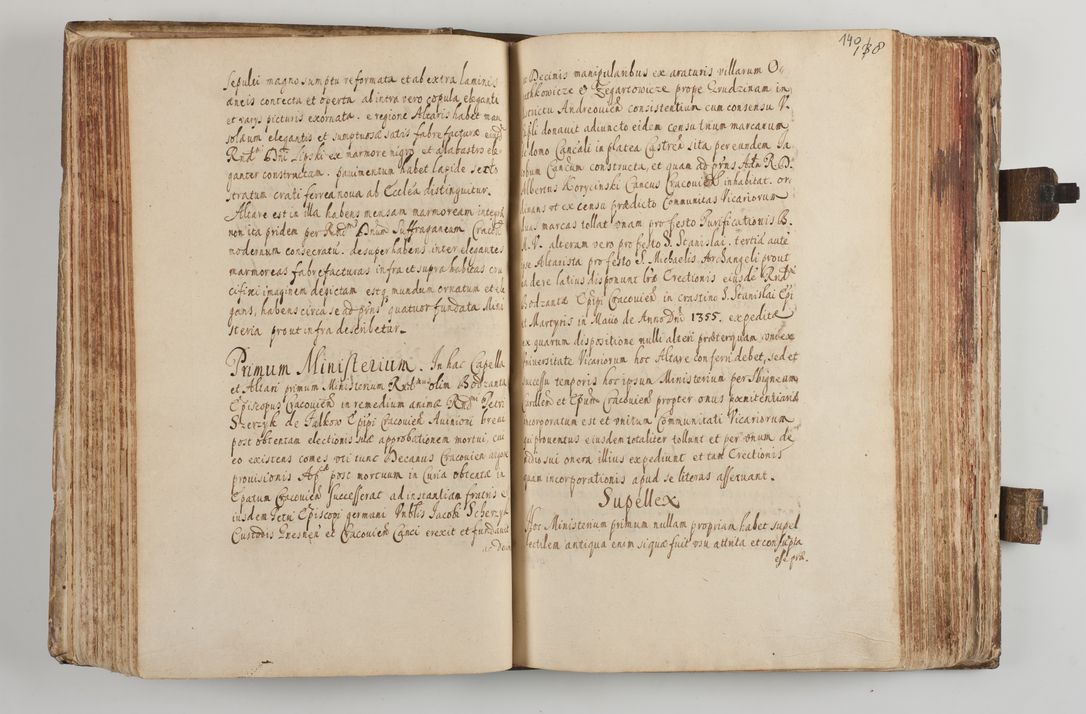 sepulti magno sumptu reformata et ab extra laminis
æneis contecta et operta ab intra vero copula elegante
et varijs picturis exornata. e regione Altaris habet mau
solæum elegantis et sumptuosæ satis fabrefacturæ eiusd
Rndmi Dni Lipski ex marmore nigro et alabastro ele
ganter constructam. pavimentum habet lapide secto
stratum crati ferrea nova ab Ecclia distinguitur.
Altare est in illa habens mensam marmoream integrā
non ita pridem per Rndm Dnum Suffraganeum Cracōn
modernum consecratū. desuper habens inter elegantes
marmoreas fabrefacturas infra et supra habitas cru
cifixi imaginem depictam estq mundum ornatum et ele
gans, habens circa se ad prns quatuor fundata Mini
steria prout infra describetur.
Primum Ministerium. In hac Capella
et Altari primum Ministerium Rndmus olim Bodzanta
Episcopus Cracovien in remedium animæ Rndmi Petri
Szerzyk de Falkow Epipi Cracovien Avinioni brevi
post obtentam electionis suæ approbationem mortui, cui
eo existens comes uti tunc Decanus Cracovien vigore
provisionis Aplcæ post mortuum in Curia obtentæ in
Epatum Cracovien successerat ad instantiam fratris e
iusdem Petri Episcopi germani Nblis Jacobi Scherzyk
Custodis Gnesnen et Cracovien Canci erexit et fundavit
ac Deci
140
138
c Decimis manipularibus ex araturis villarum O
athkowicze et Zegartowicze prope Grudzinam in
istrictu Andreovien consistentium cum consensu V.
pli donavit adiuncto eidem censu trium marcarum
domo Cancali in platea Castren sita per eundem Ja
obum Cancum constructa, et quam ad prns Adm R. D.
Albertus Korycinski Cancus Cracovien inhabitat. or
dinans ut ex censu prædicto Communitas Vicariorum
duas marcas tollat unam pro festo Purificationis B.
M. V. alteram vero pro festo S. Stanislai. tertiā autē
ipse Altarista pro festo S. Michaelis Archangeli prout
ea de re latius disponunt lræ Erectionis eiusdē Rndmi
Bodzantæ Epipi Cracovien in crastino S. Stanislai Epi
et Martyris in Maio de Anno Dni 1355. expeditæ
ex quarum dispositione nulli alteri præterquam uni ex
Universitate Vicariorum hoc Altare conferri debet, sed et
successu temporis hoc ipsum Ministerium per Sbigneum
Cardlem et Epum Cracovien propter onus pœnitentiariæ
incorporatum est et unitum Communitati Vicariorum
qui proventus eiusdem totaliter tollunt et per unum de
medio sui onera illius expediunt et tam Erectionis
quam incorporationis apud se literas asservant.
Supellex
Hoc Ministerium primum nullam propriam habet supel
lectilem antiqua enim si quæ fuit usu attrita et consupta
esse præ.